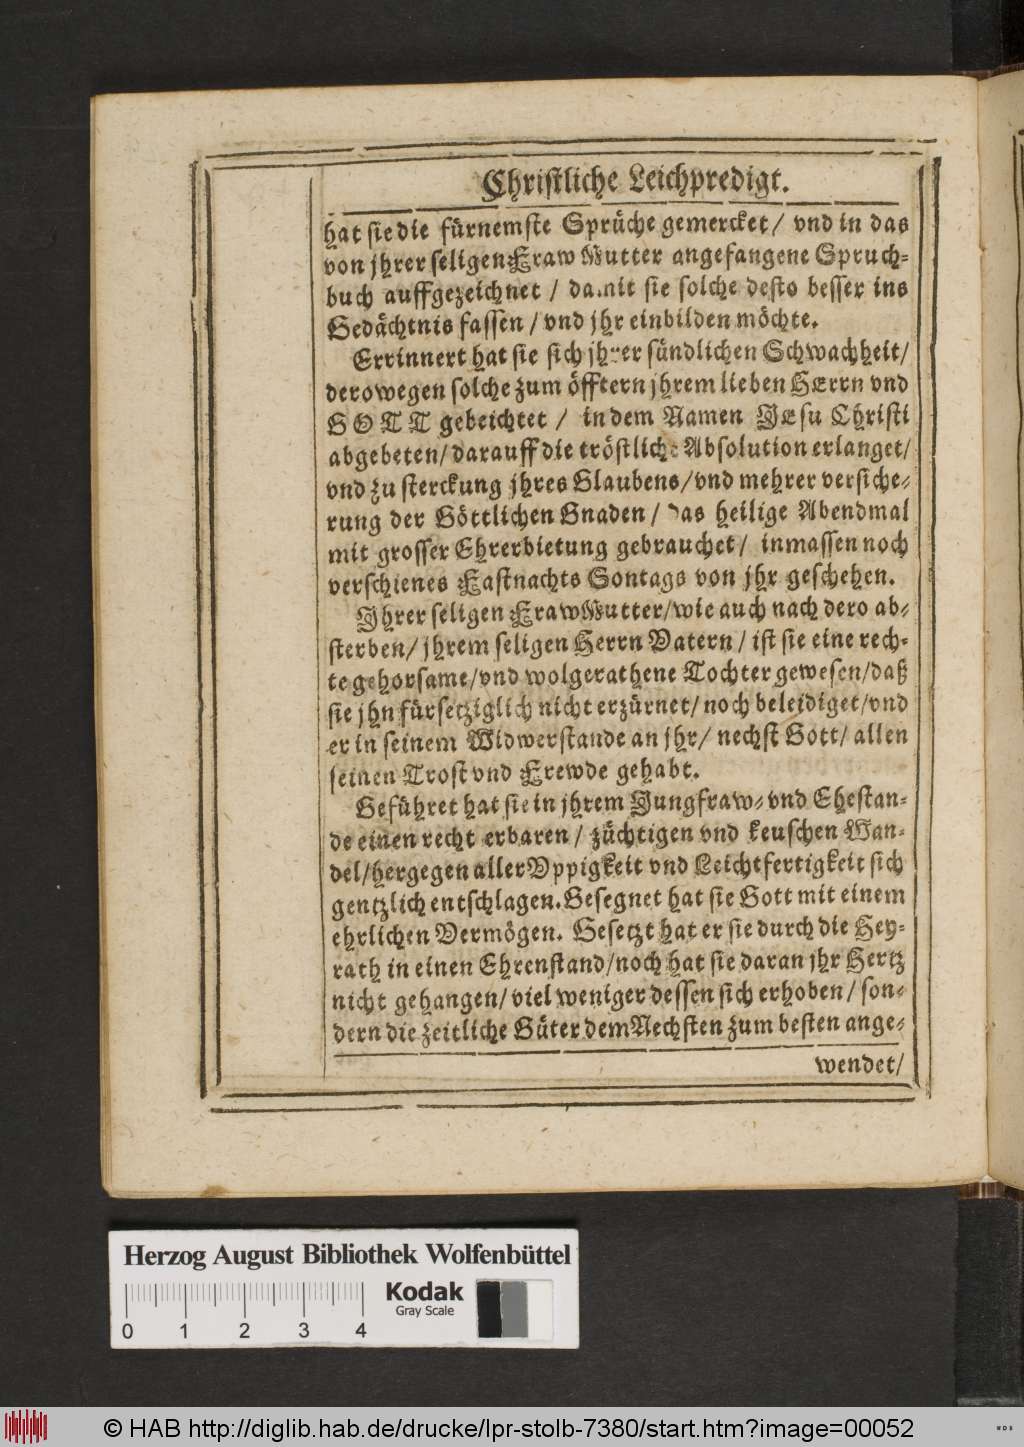 Christliche Leichpredigt.
hat sie die fürnemste Sprüche gemercket / vnd in das
von jhrer seligen Fraw Mutter angefangene Spruch-
buch auffgezeichnet / damit sie solche desto besser ins
Gedächtnis fassen / vnd jhr einbilden möchte.
Errinnert hat sie sich jhrer sündlichen Schwachheit/
derowegen solche zum öfftern jhrem lieben HErrn vnd
GOTT gebeichtet / in dem Namen JEsu Christi
abgebeten/ darauff die tröstliche Absolution erlanget/
vnd zu sterckung jhres Glaubens/ vnd mehrer versiche-
rung der Göttlichen Gnaden / das heilige Abendmal
mit grosser Ehrerbietung gebrauchet / inmassen noch
verschienes Fastnachts Sontags von jhr geschehen.
Jhrer seligen Fraw Mutter/ wie auch nach dero ab-
sterben/ jhrem seligen Herrn Vatern / ist sie eine rech-
te gehorsame/ vnd wolgerathene Tochter gewesen/ daß
sie jhn fürsetziglich nicht erzürnet/ noch beleidiget/ vnd
er in seinem Widwerstande an jhr/ nechst Gott/ allen
seinen Trost vnd Frewde gehabt.
Geführet hat sie in jhrem Jungfraw- vnd Ehestan-
de einen recht erbaren / züchtigen vnd keuschen Wan-
del/ hergegen aller Vppigkeit vnd Leichtfertigkeit sich
gentzlich entschlagen. Gesegnet hat sie Gott mit einem
ehrlichen Vermögen. Gesetzt hat er sie durch die Hey-
rath in einen Ehrenstand/ noch hat sie daran jhr Hertz
nicht gehangen/ viel weniger dessen sich erhoben / son-
dern die zeitliche Güter dem Nechsten zum besten ange-
wendet/
Herzog August Bibliothek Wolfenbüttel
Kodak
Gray Scale
0 1 2 3 4
© HAB http://diglib.hab.de/drucke/lpr-stolb-7380/start.htm?image=00052